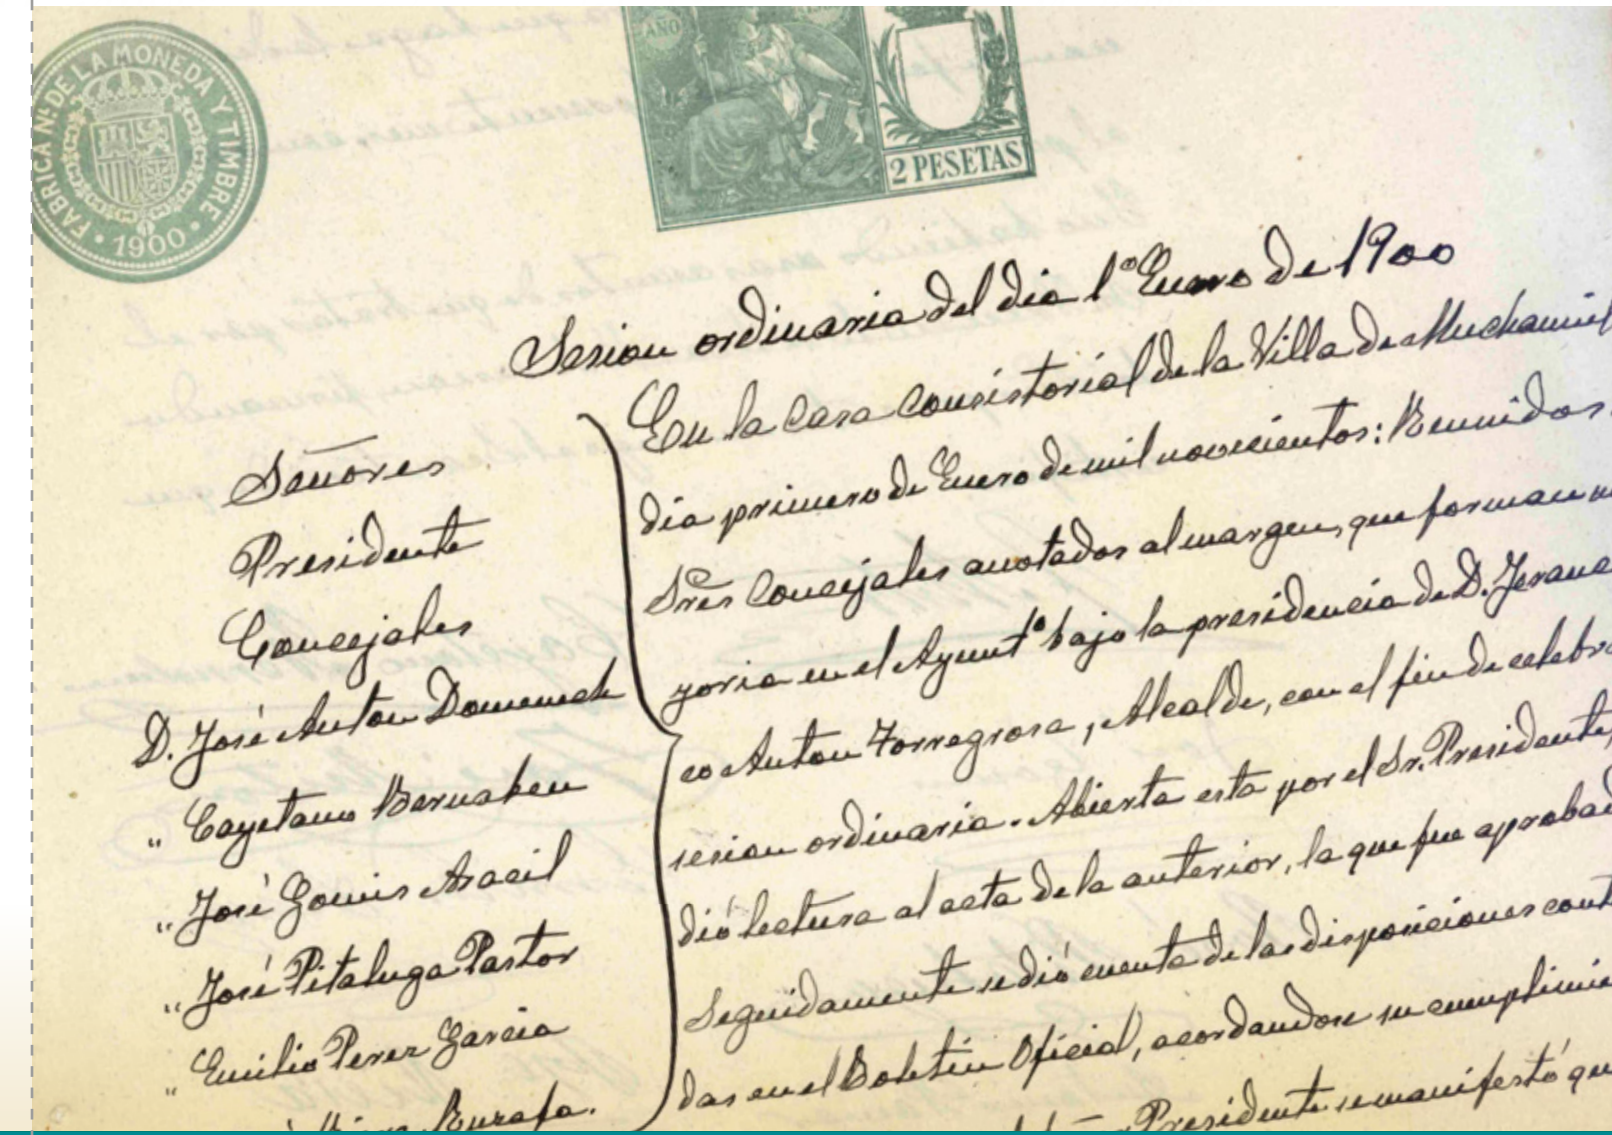 FABRICA Nal DE LA MONEDA Y TIMBRE
• 1900 •
AÑO
2 PESETAS
Sesion ordinaria del dia 1º Enero de 1900
Señores
Presidente
Concejales
D. José Anton Domenech
" Cayetano Bernabeu
" José Gomis Aracil
" José Pitaluga Pastor
" Emilio Perez Garcia
En la Casa Consistorial de la Villa de Muchamiel
dia primero de Enero de mil novecientos: Reunidos
Sres Concejales anotados al margen, que forman
yoria en el Ayuntº bajo la presidencia de D. Jerano
co Anton Torregrosa, Alcalde, con el fin de celebr
sesion ordinaria. Abierta esta por el Sr. Presidente,
dió lectura al acta de la anterior, la que fue aprobad
Seguidamente se dió cuenta de las disposiciones cont
das en el Boletin Oficial, acordandose su cumplimie
Presidente se manifestó qu